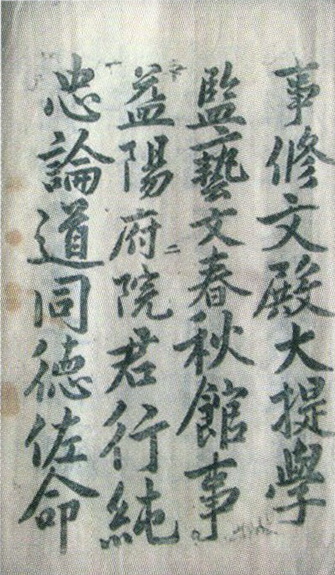 事修文殿大提學
監藝文春秋館事
益陽府院君行純
忠論道同德佐命